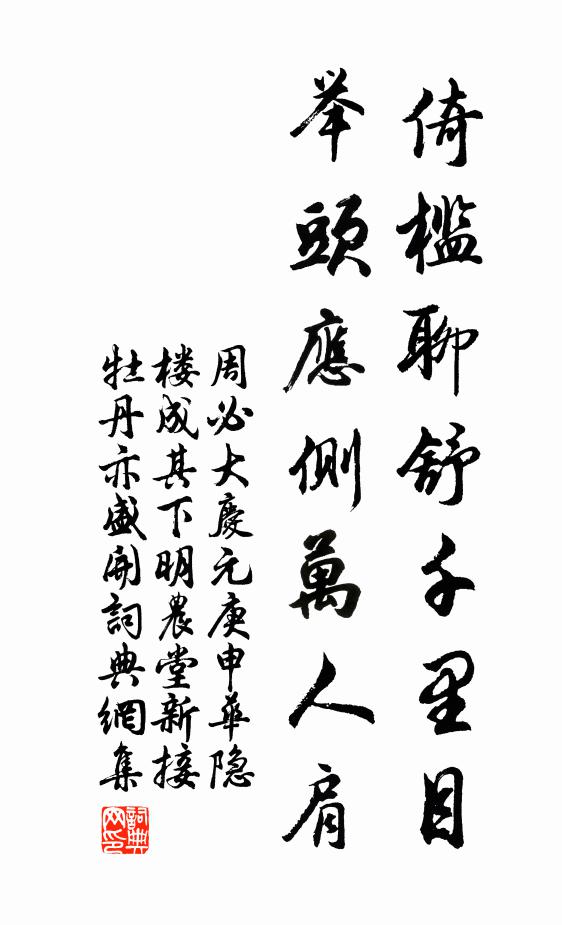 倚檻聊舒千里目
举頭應側萬人肩
周必大慶元庚申華隐
楼成其下明農堂新接
牡丹亦盛開詞典網集
詞典网印